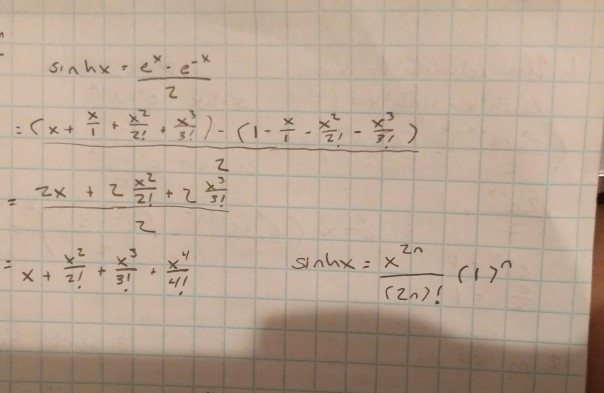 sinhx = e^x - e^-x / 2
= (x + x/1 + x²/2! + x³/3!) - (1 - x/1 - x²/2! - x³/3!) / 2
= 2x + 2 x²/2! + 2 x³/3! / 2
= x + x²/2! + x³/3! + x⁴/4!
sinhx = x^2n / (2n)! (1)^n